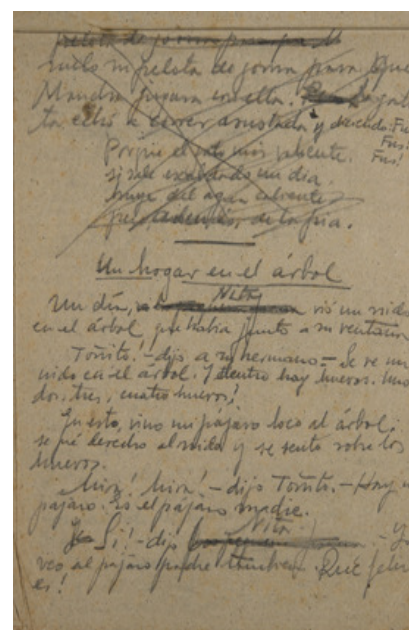 pelota de goma para que M
suelo mi pelota de goma para que
Mancha jugara con ella. La gati
ta echó a correr asustada y diciendo: Fu
Fus!
Fus!
Porque el gato más valiente
si sale escaldado un día
huye del agua caliente
pero también de la fría.
Un hogar en el árbol
Un día, Nita vió un nido
en el árbol que había junto a su ventana
Toñito! - dijo a su hermano - Se ve un
nido en el árbol. Y dentro hay huevos. Uno
dos, tres, cuatro huevos!
En esto, vino un pájaro loco al árbol;
se fué derecho al nido y se sentó sobre los
huevos.
Mira! Mira! - dijo Toñito. - Hay u
pájaro. Es el pájaro madre.
Si! - dijo Nita. - Yo
veo al pájaro padre también. Qué feliz
es!